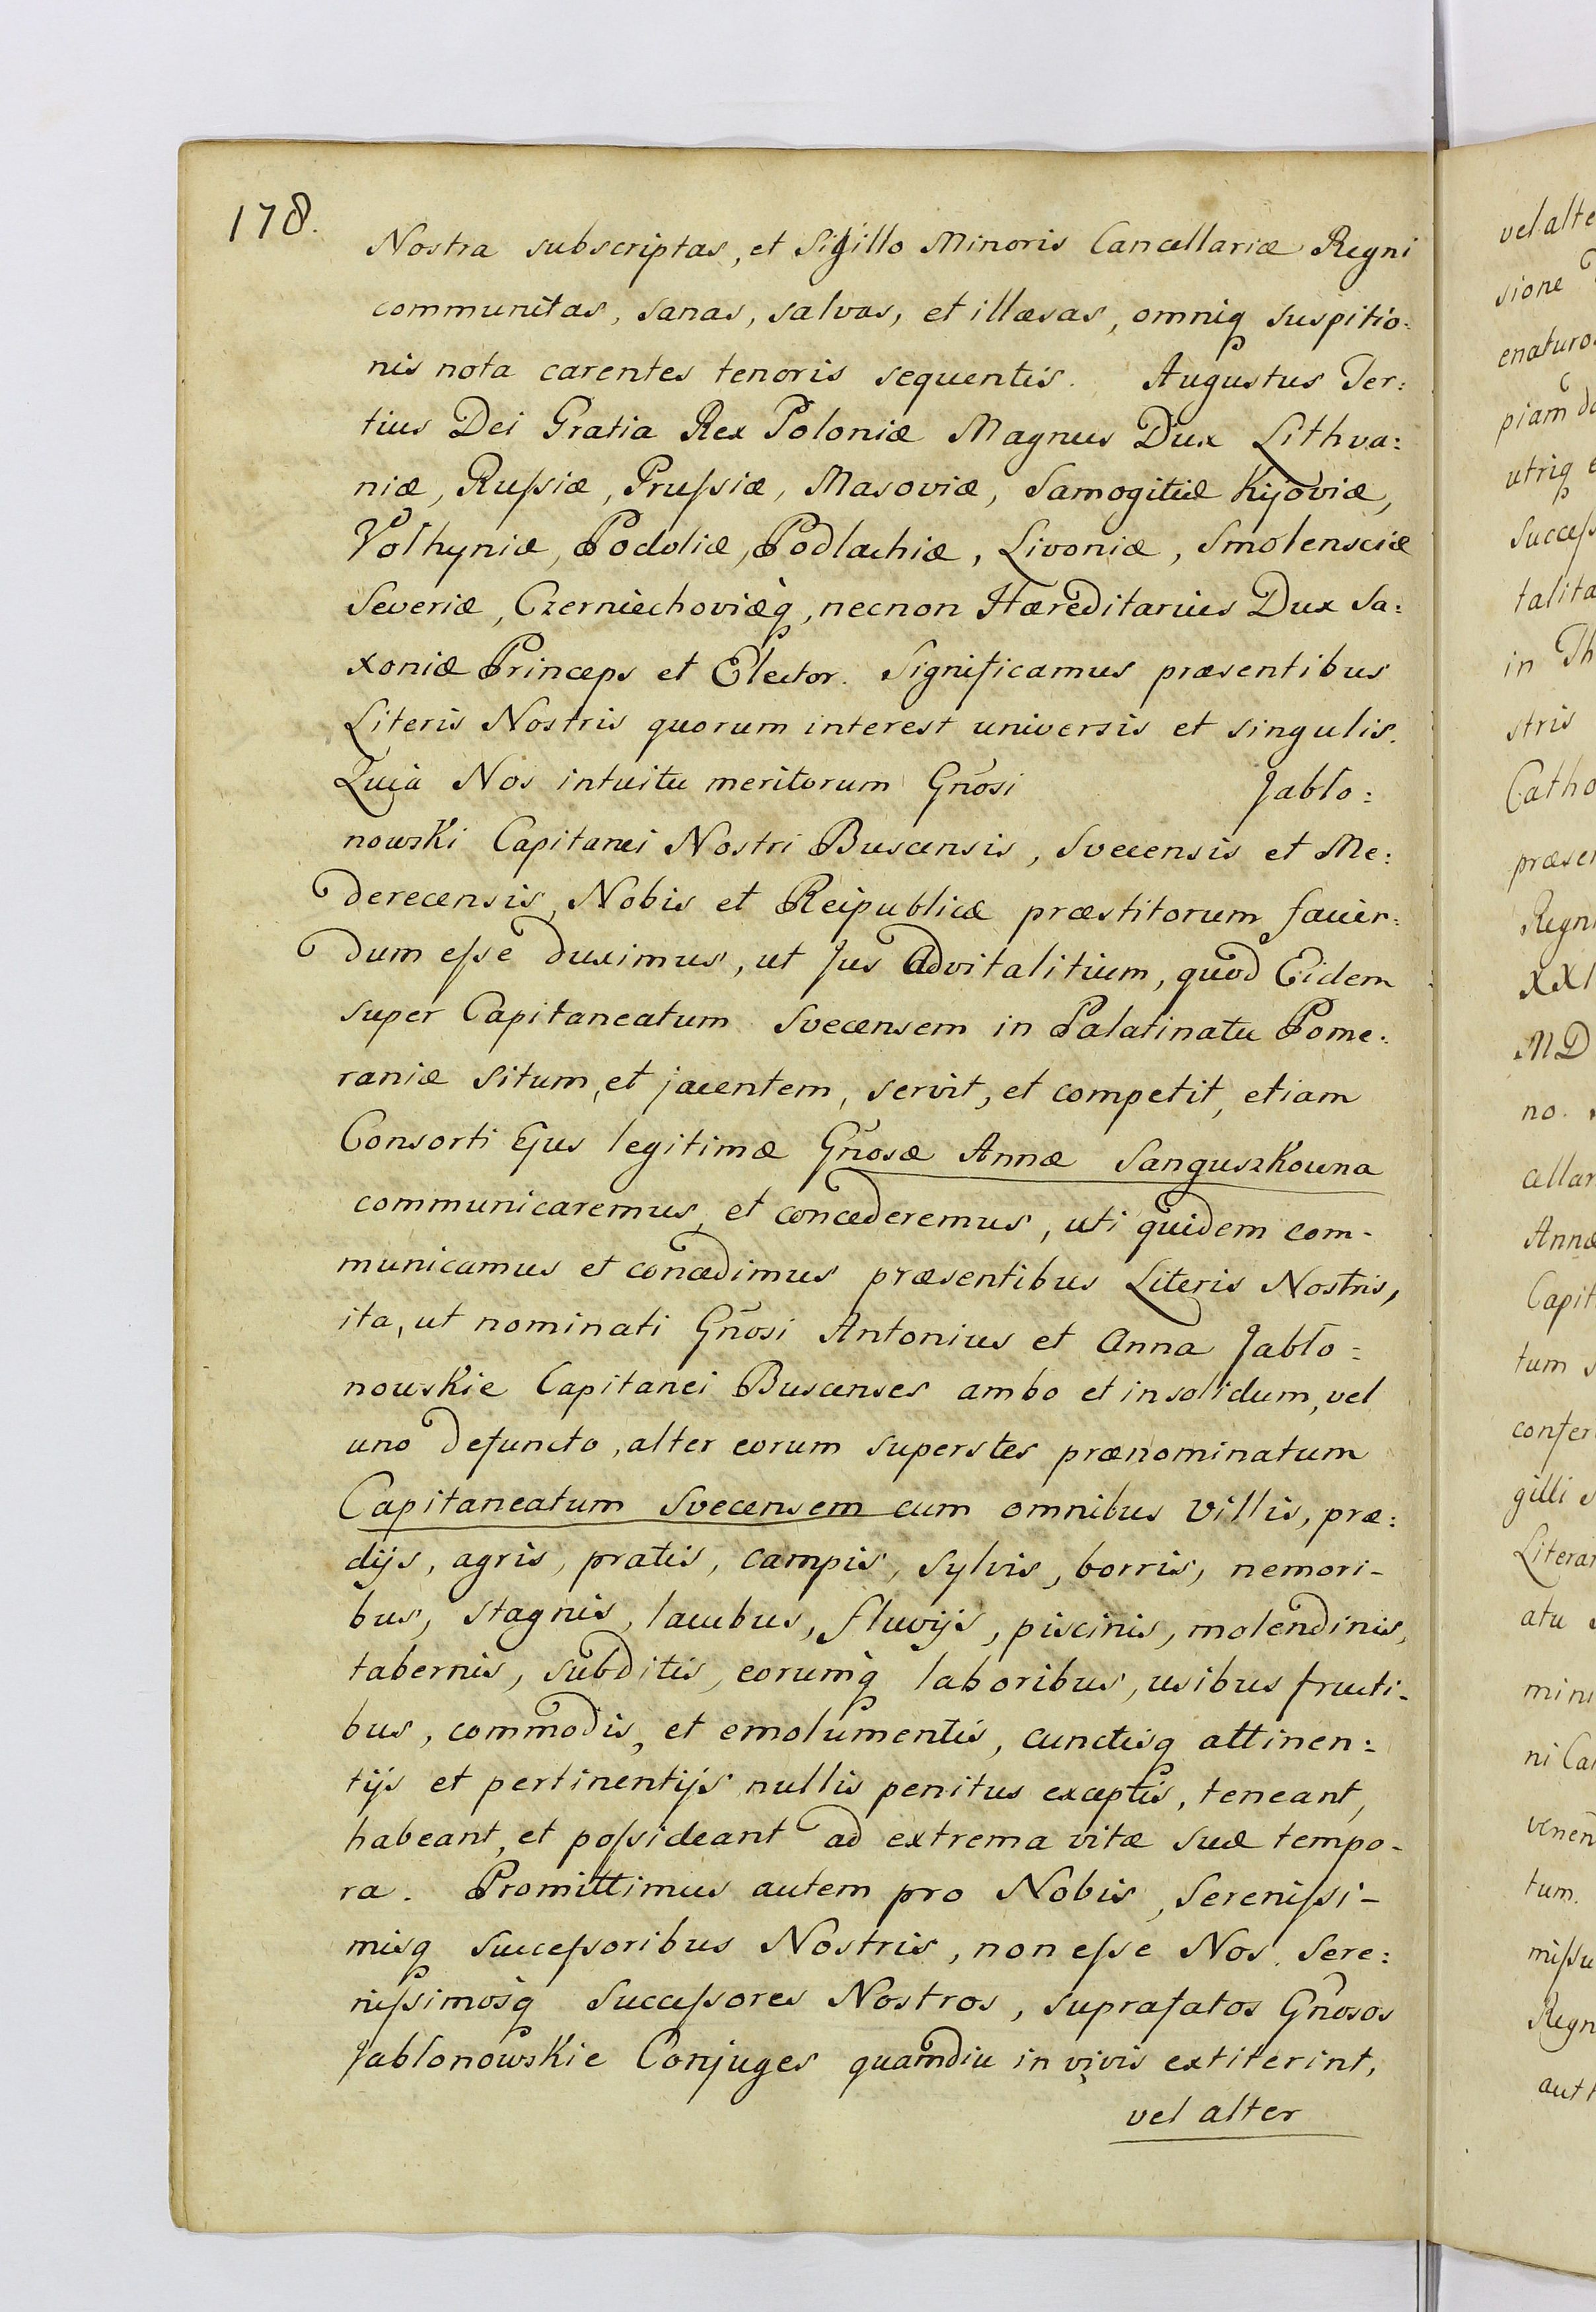 178.
Nostra subscriptas, et Sigillo Minoris Cancellariæ Regni
communitas, sanas, salvas, et illæsas, omniq suspitio:
nis nota carentes tenoris sequentis. Augustus Ter:
tius Dei Gratia Rex Poloniæ Magnus Dux Lithva:
niæ, Rufsiæ, Prufsiæ, Masoviæ, Samogitiæ Kijoviæ,
Volhyniæ, Podoliæ, Podlachiæ, Livoniæ, Smolensciæ
Severiæ, Czerniechoviæq, necnon Hæreditarius Dux Sa:
xoniæ Princeps et Elector. Significamus præsentibus
Literis Nostris quorum interest universis et singulis.
Quia Nos intuitu meritorum Gñosi Jabło:
nowski Capitanei Nostri Buscensis, Svecensis et Me:
derecensis, Nobis et Reipublicæ præstitorum facien:
dum efse duximus, ut Jus Advitalitium, quod Eidem
super Capitaneatum Svecensem in Palatinatu Pome:
raniæ situm, et jacentem, servit, et competit, etiam
Consorti Ejus legitimæ Gñosæ Annæ Sanguszkowna
communicaremus, et concederemus, uti quidem com-
municamus et concedimus præsentibus Literis Nostris,
ita, ut nominati Gñosi Antonius et Anna Jabło:
nowskie Capitanei Buscenses ambo et insolidum, vel
uno defuncto, alter eorum superstes prænominatum
Capitaneatum Svecensem cum omnibus villis, præ:
dijs, agris, pratis, campis, sylvis, borris, nemori-
bus, stagnis, lacubus, fluvijs, piscinis, molendinis,
tabernis, subditis, eorumq laboribus, usibus fructi-
bus, commodis, et emolumentis, cunctisq attinen:
tijs et pertinentijs nullis penitus exceptis, teneant,
habeant, et pofsideant ad extrema vitæ suæ tempo-
ra. Promittimus autem pro Nobis, Serenifsi-
misq succefsoribus Nostris, non efse Nos. Sere:
nifsimosq Succefsores Nostros, suprafatos Gñosos
Jablonowskie Conjuges quamdiu in vivis extiterint,
vel alter
vel alte
sione
enaturo
piam
utriq
Succefs
talita
in Th
stris
Catho
præse
Regn
XXI
MD
no.
cellar
Annæ
Capit
tum s
confer
gilli s
Litera
atu
mini
ni Ca
venen
tum.
mifsu
Regn
aut